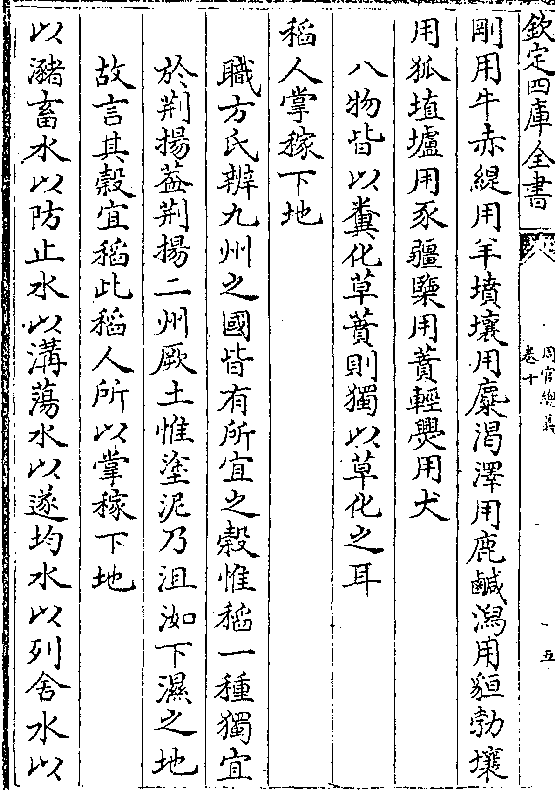 欽定四庫全書
周官總義
卷十
五
剛用牛赤緹用羊墳壤用麋渴澤用鹿鹹潟用貆勃壤
用狐埴壚用豕疆㯺用蕡輕㷼用犬
八物皆以糞化草蕡則獨以草化之耳
稻人掌稼下地
職方氏辨九州之國皆有所宜之穀惟稻一種獨宜
於荆揚葢荆揚二州厥土惟塗泥乃沮洳下濕之地
故言其穀宜稻此稻人所以掌稼下地
以瀦畜水以防止水以溝蕩水以遂均水以列舍水以